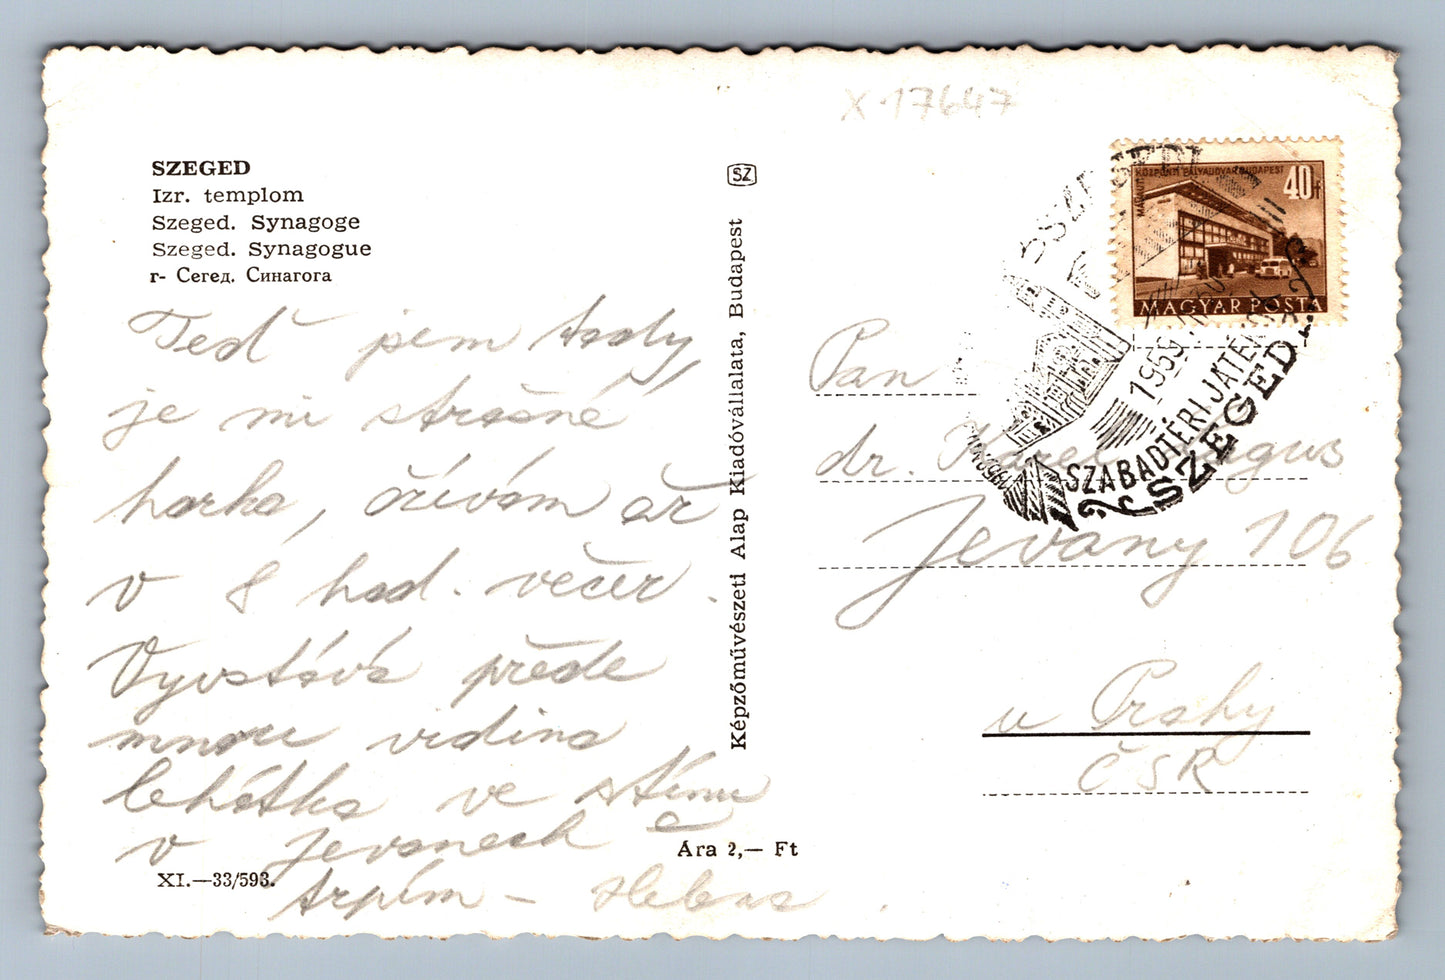 X 17647
SZEGED
Izr. templom
Szeged. Synagoge
Szeged. Synagogue
г- Сегед. Синагога
Teď jsem tady,
je mi strašné
horko, ožívám až
v 8 hod. večer.
Vyvstává přede
mnou vidina
lehátka ve stínu
v Jevanech a
trpím - Helena
XI.—33/593.
Ára 2,— Ft
SZ
Képzőművészeti Alap Kiadóvállalata, Budapest
KÖZPONTI PÁLYAUDVAR BUDAPEST
40f
MAGYAR POSTA
1959
SZABADTÉRI JÁTÉK
SZEGED
Pan
dr. Karel
Jevany 106
u Prahy
ČSR